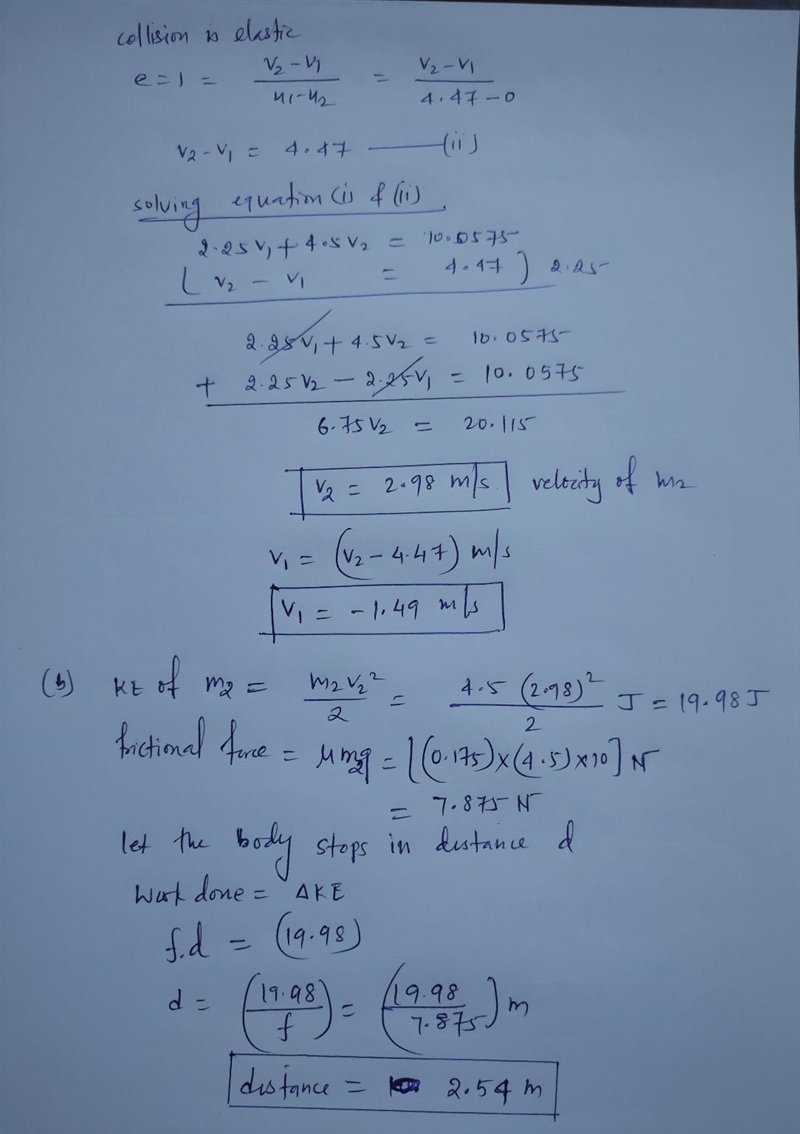 collision is elastic
e = 1 = (v₂ - v₁)/(u₁ - u₂) = (v₂ - v₁)/(4.47 - 0)
v₂ - v₁ = 4.47 —— (ii)
solving equation (i) & (ii)
2.25v₁ + 4.5v₂ = 10.0575
( v₂ - v₁ = 4.47 ) 2.25
2.25v₁ + 4.5v₂ = 10.0575
+ 2.25v₂ - 2.25v₁ = 10.0575
6.75v₂ = 20.115
v₂ = 2.98 m/s velocity of m₂
v₁ = (v₂ - 4.47) m/s
v₁ = -1.49 m/s
(b) KE of m₂ = m₂v₂²/2 = 4.5 (2.98)²/2 J = 19.98 J
frictional force = μm₂g = [(0.175)×(4.5)×10] N
= 7.875 N
let the body stops in distance d
Work done = ΔKE
f.d = (19.98)
d = (19.98/f) = (19.98/7.875) m
distance = 2.54 m